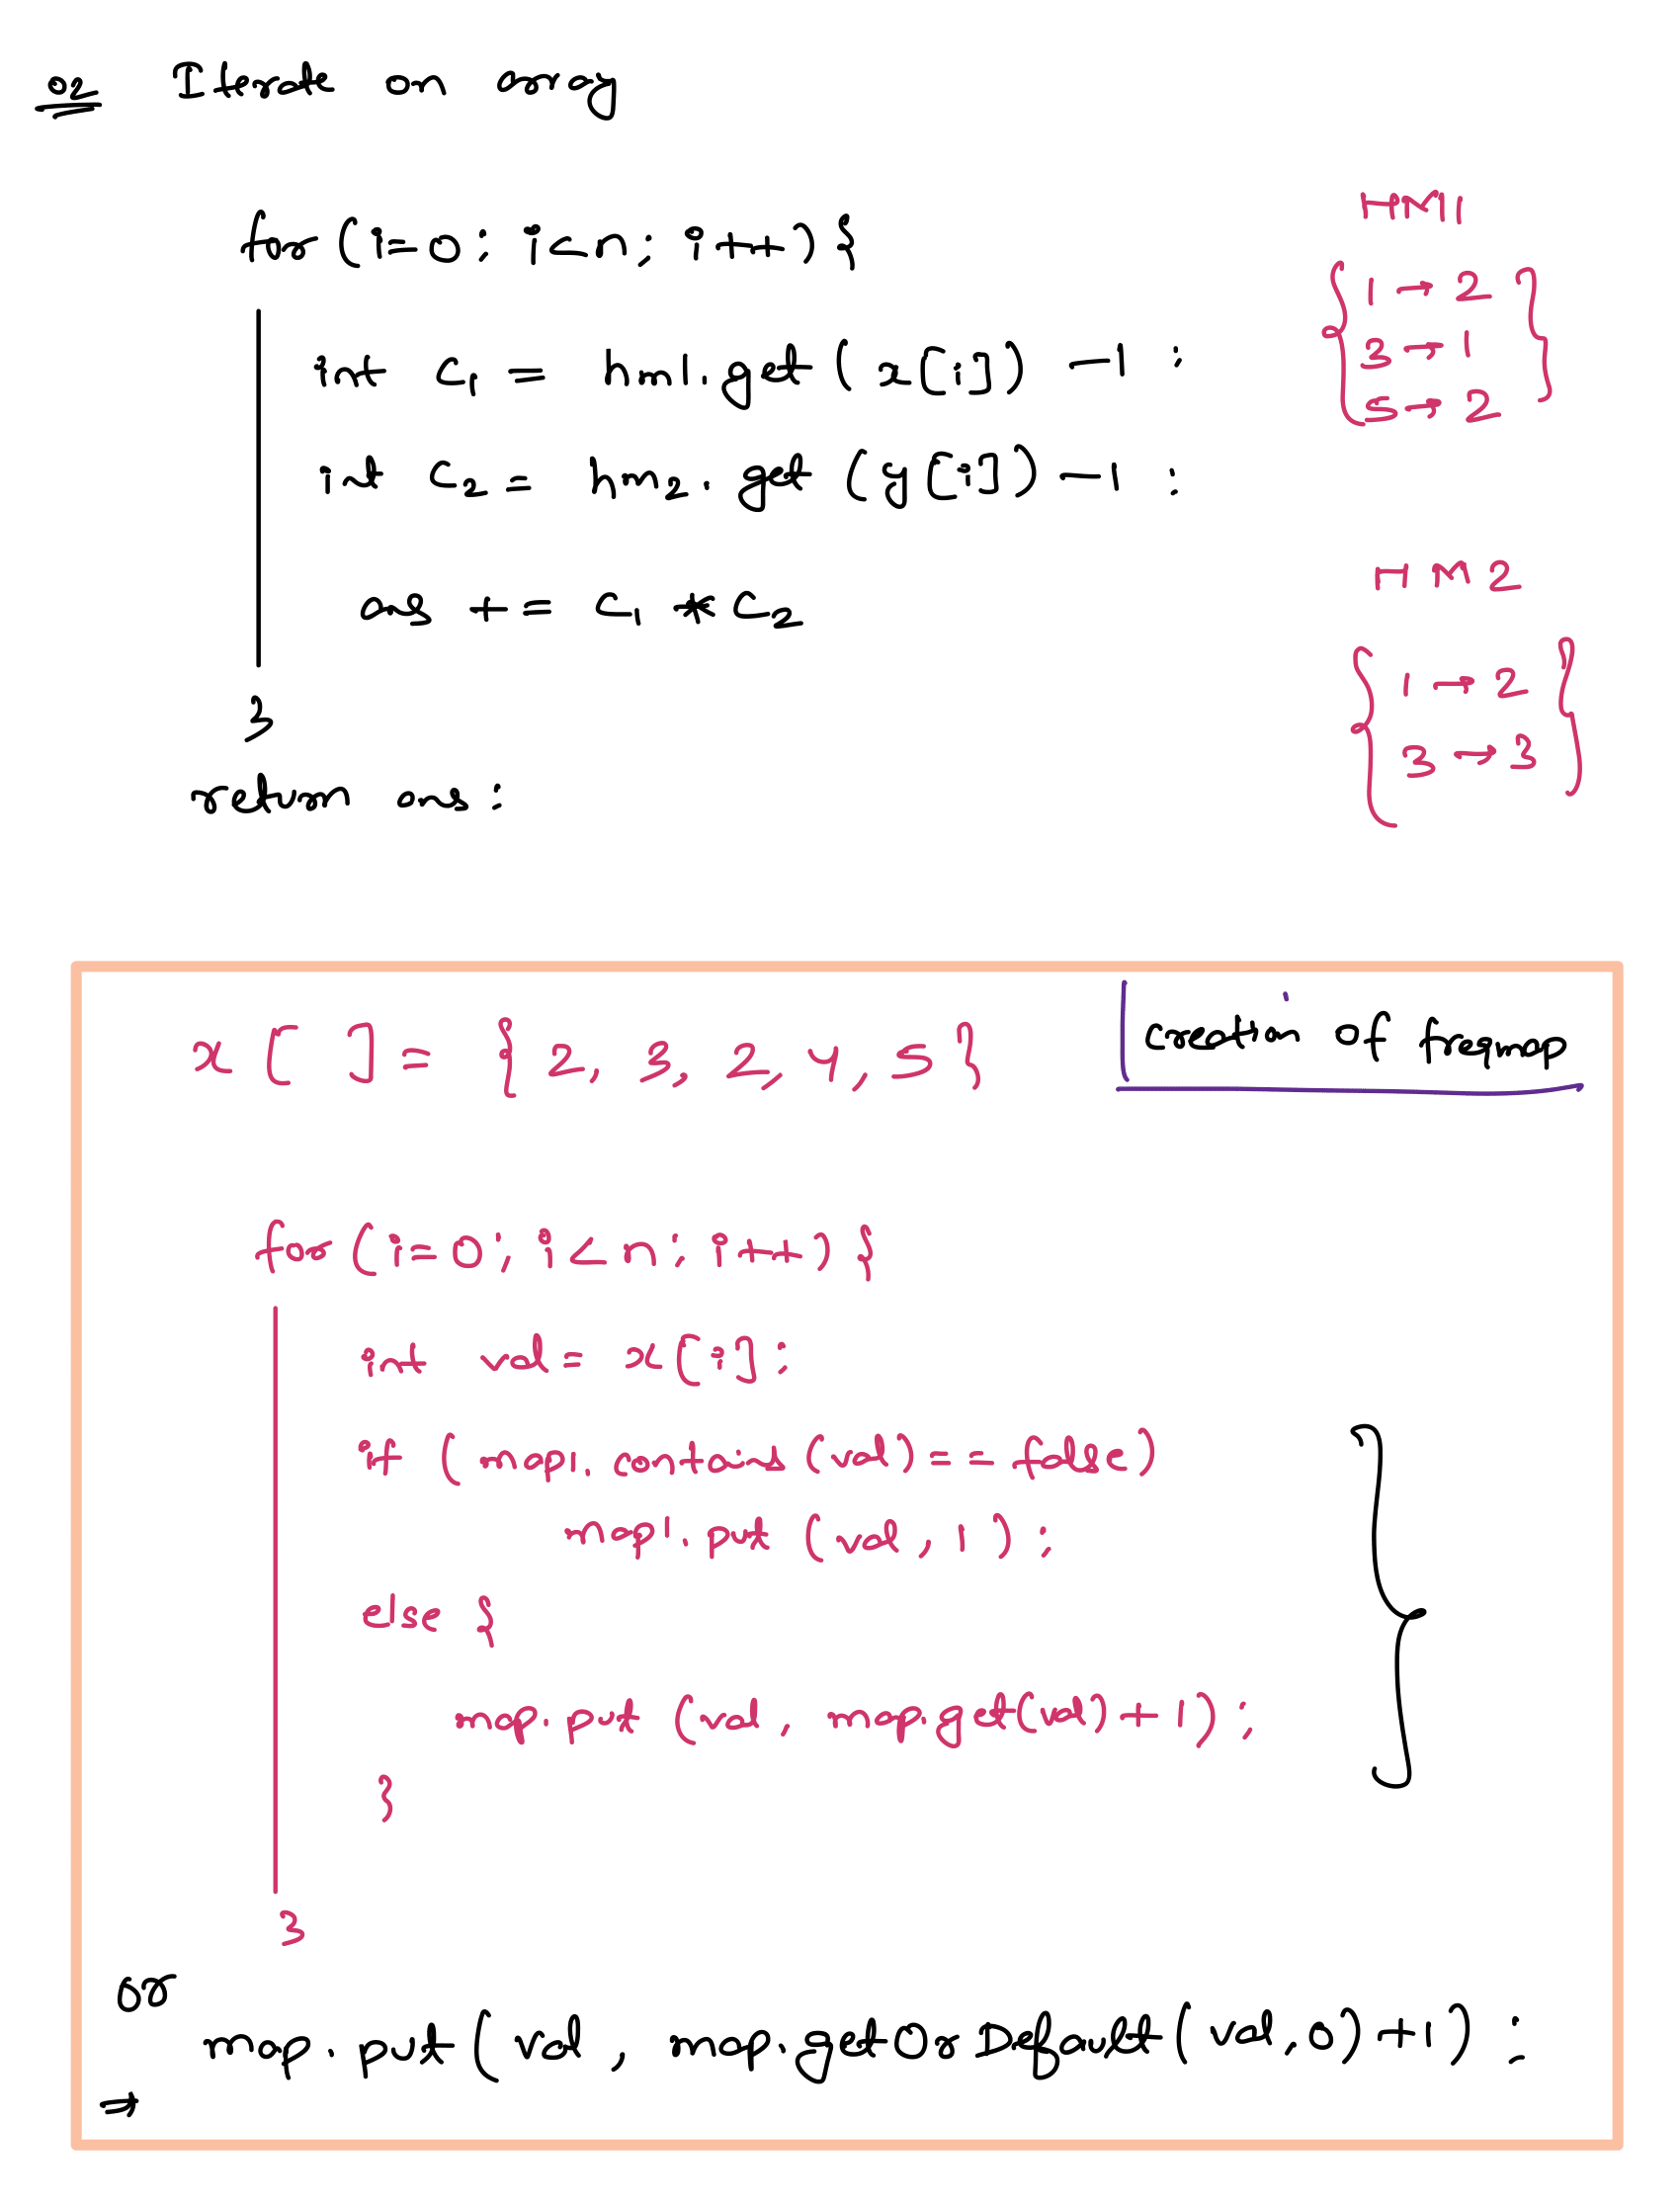 02 Iterate on array
for(i=0; i<n; i++){
int c1 = hm1.get(x[i]) -1;
int c2 = hm2.get(y[i]) -1;
ans += c1 * c2
}
return ans;
HM1
{ 1 → 2 }
3 → 1
5 → 2
HM2
{ 1 → 2 }
3 → 3
x[ ] = { 2, 3, 2, 4, 5 }
creation of freqmap
for(i=0; i<n; i++){
int val = x[i];
if ( map1.contains(val) == false)
map1.put (val, 1);
else {
map.put (val, map.get(val)+1);
}
}
or
⇒ map.put(val, map.getOrDefault(val,0)+1);